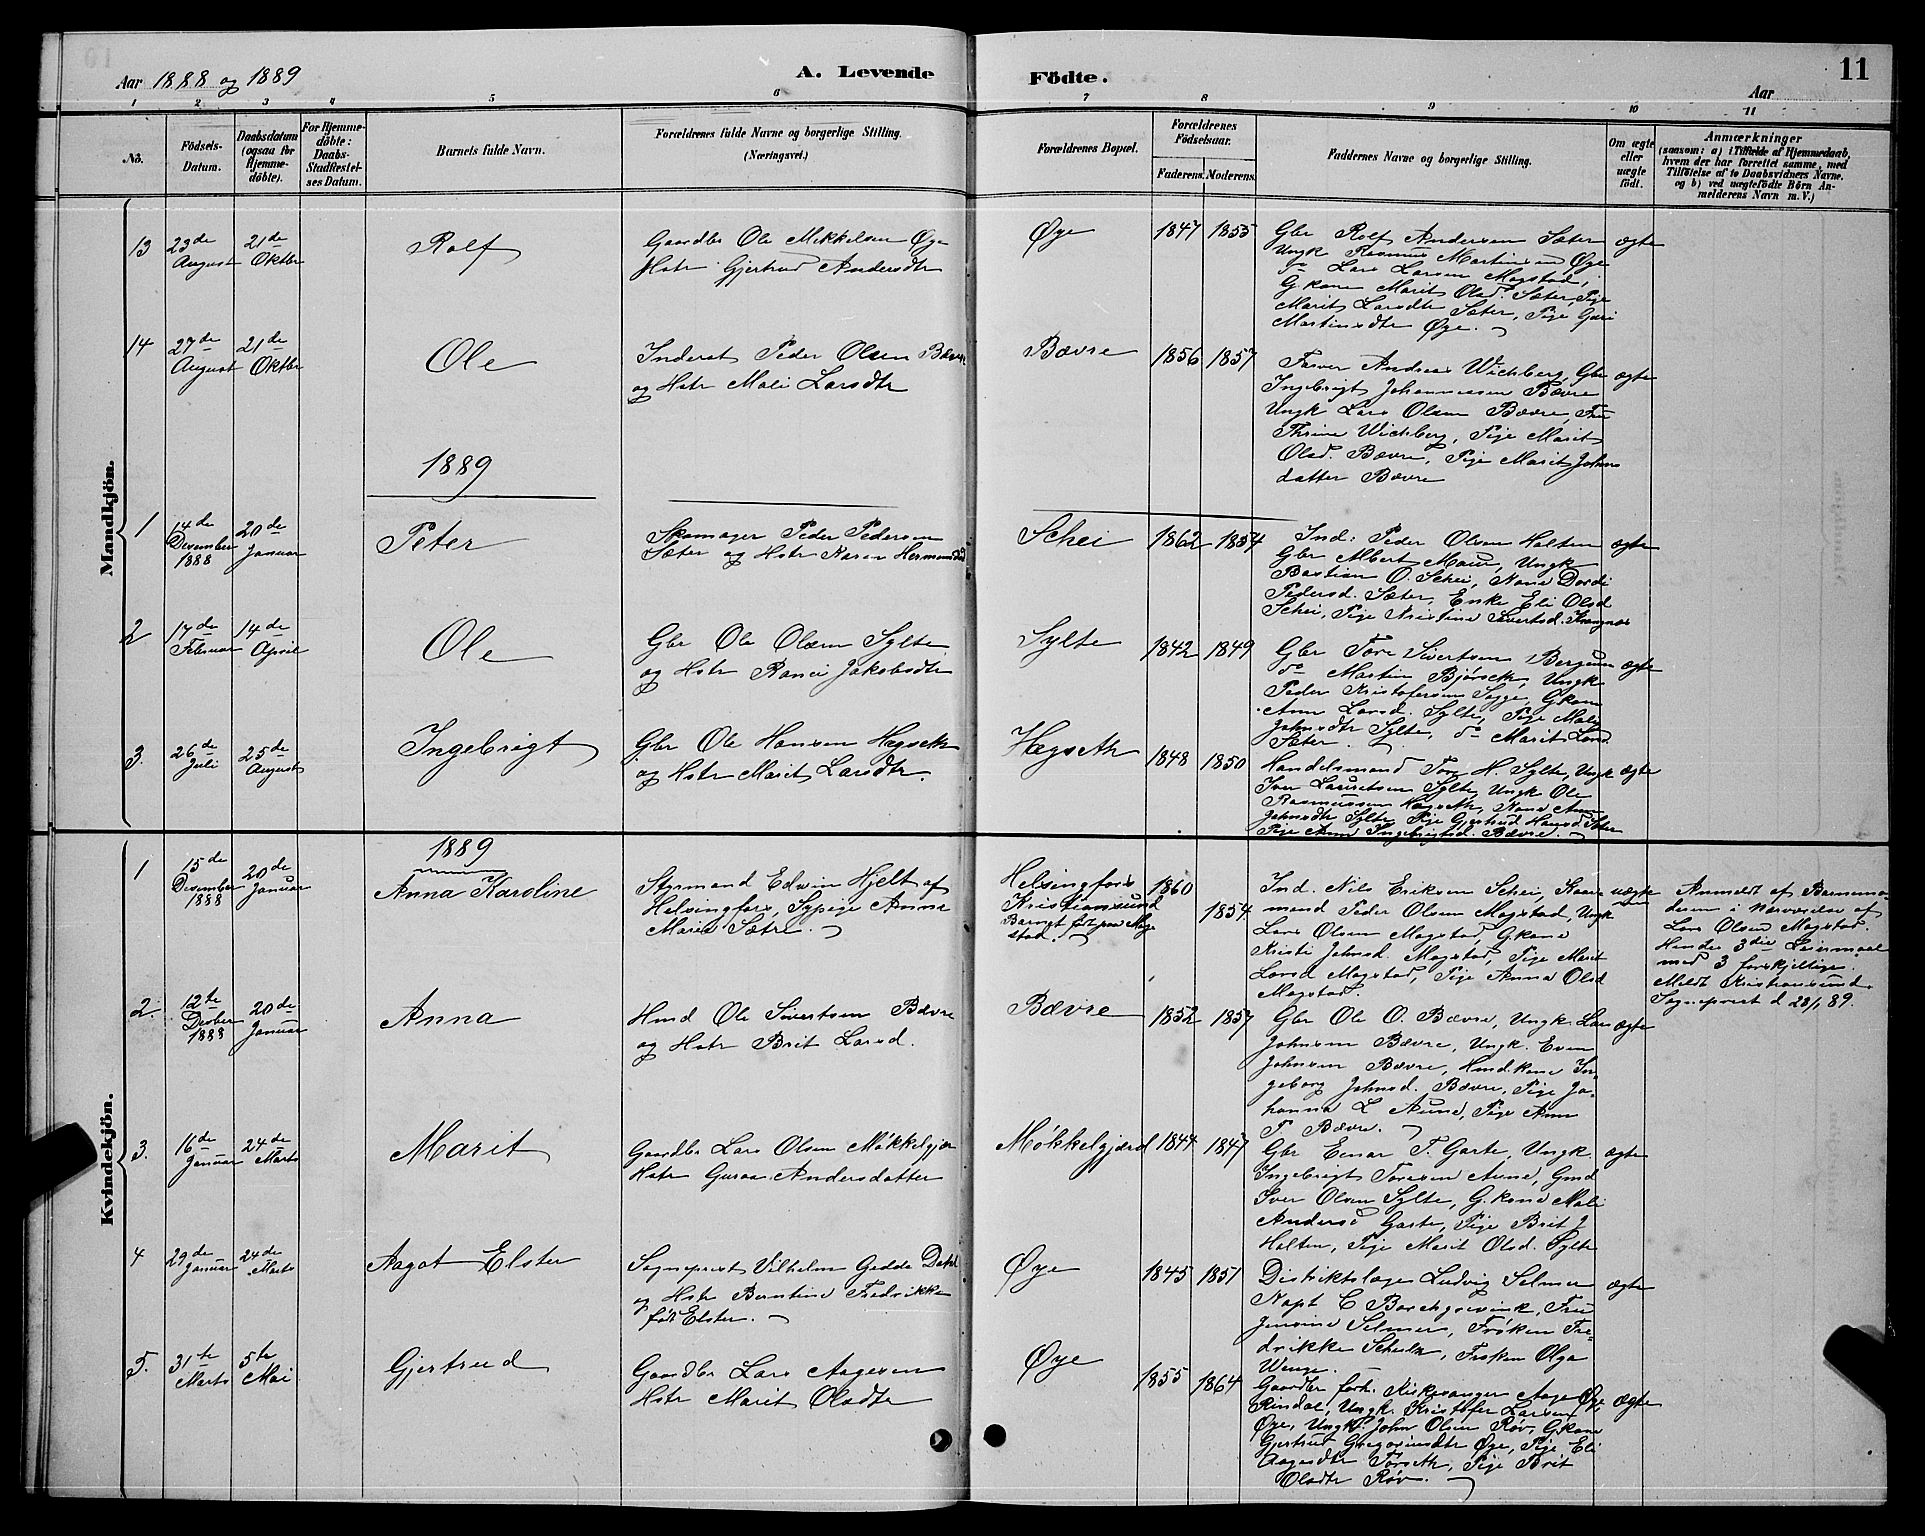 Aar 1888 og 1889
A. Levende
Födte.
Aar
11
1 2 3 4 5 6 7 8 9 10 11
No.
Födsels-
Datum.
Daabsdatum
(ogsaa for
Hjemme-
döbte).
For Hjemme-
döbte:
Daabs-
Stadfæstel-
ses Datum.
Barnets fulde Navn.
Forældrenes fulde Navne og borgerlige Stilling.
(Næringsvei.)
Forældrenes Bopæl.
Forældrenes
Födselsaar.
Faderens. Moderens.
Faddernes Navne og borgerlige Stilling.
Om ægte
eller
uægte
födt.
Anmærkninger
(saasom: a) i Tilfælde af Hjemmedaab,
hvem der har forrettet samme, med
Tilföielse af to Daabsvidners Navne.
og b) ved uægtefödte Börn An-
melderens Navn m. V.)
Mandkjön.
13 23de August 21de Oktbr
Rolf
Gaardbr Ole Mikkelsen Øye
Hstr Gjertrud Andersdtr
Øye
1847 1855
Gbr Rolf Andersen Sæter
Ungk Rasmus Martinsen Øye
do Lars Larsen Magstad,
G.kone Marit Olsd. Sæter, Pige
Marit Larsdtr Sæter, Pige Guri
Martinsdtr Øye.
ægte
14 27de August 21de Oktbr
Ole
Inderst Peder Olsen Bævre
og Hstr Mali Larsdtr
Bævre
1856 1857
Farver Andreas Wichberg, Gbr
Ingebrigt Johannessen Bævre
Ungk Lars Olsen Bævre, Fru
Thrine Wichberg, Pige Marit
Olsd. Bævre, Pige Marit Johns
datter Bævre
ægte
1889
1 14de December 1888 20de Januar
Peter
Skomager Peder Pedersen
Sæter og Hstr Karen Hermansd
Schei
1862 1854
Ind: Peder Olsen Halten
Gbr Albert Maur, Ungk
Bastian O. Schei, Kone Dordi
Pedersd. Sæter, Enke Eli Olsd
Schei, Pige Kristine Sivertsd.
ægte
2 17de Februar 14de April
Ole
Gbr Ole Olsen Sylte
og Hstr Ranei Jakobsdtr
Sylte
1842 1849
Gbr Tore Sivertsen Bergum
do Martin Bjørseth, Ungk
Peder Kristofersen Sogge, G.kone
Ann Larsd. Sylte, Pige Mali
Johnsdtr Sylte, do Marit Larsd
Sæter.
ægte
3. 26de Juli 25de August
Ingebrigt
Gbr Ole Hansen Hegseth
og Hstr Marit Larsdtr.
Hegseth
1848 1850
Handelsmand Tore H. Sylte, Ungk
Iver Lauritsen Sylte, Ungk Ole
Rasmussen Hegseth, Kone Ann
Johnsdtr Sylte, Pige Gjertrud Hansd Sæter
Pige Ann Ingebrigtsd. Bævre.
ægte
Kvindekjön.
1889
1 15de December 1888 20de Januar
Anna Karoline
Styrmand Edwin Hjelt af
Helsingfors, Sypige Anna
Marie Sætre.
Helsingfors
Kristiansund
Barnet født paa Mag-
stad.
1860
1854
Ind. Nils Eriksen Schei, Kaare-
mand Peder Olsen Magstad, Ungk
Lars Olsen Magstad, G.kone
Kristi Johnsd. Magstad, Pige Marit
Larsd Magstad, Pige Anna Olsd
Magstad.
uægte
Anmeldt af Barnemo-
deren i Nærværelse af
Lars Olsen Magstad.
Hendes 3die Leiermaal
med 3 forskjellige.
Meldt Kristiansund
Sogneprest d 28/1 89.
2. 12te Decber 1888 20de Januar
Anna
Hmd Ole Sivertsen Bævre
og Hstr Brit Larsd.
Bævre
1852 1857
Gbr Ole O. Bævre, Ungk Lars
Johnsen Bævre, Ungk. Even
Johnsen Bævre, Hmdkone In-
geborg Johnsd. Bævre, Pige Jo-
hanna L Aune, Pige Ann
T. Bævre.
ægte
3. 16de Januar 24de Marts
Marit
Gaardbr Lars Olsen Møkkelgjer
Hstr Guroa Andersdatter
Møkkelgjærd
1844 1847
Gbr Einar T. Garte, Ungk
Ingebrigt Toresen Aune, Gmd
Iver Olsen Sylte, G.kone Mali
Andersd Garte, Pige Brit J
Halten, Pige Marit Olsd. Sylte
ægte
4 29de Januar 24de Marts
Aagot Elster
Sogneprest Vilhelm Gedde Dahl
og Hstr Berntine Fredrikke
født Elster.
Øye
1845 1851
Distriktslæge Ludvig Selmer
Kapt C Borchgrevink, Fru
Jensine Selmer, Frøken Fre-
drikke Schultz, Frøken Olga
Wenge.
ægte
5. 31te Marts 5te Mai
Gjertrud
Gaardbr Lars Aagesen
Hstr Marit Olsdtr
Øye
1855 1864
Gaardbr forh. Kirkesanger Aage Øye
Rindal, Ungk. Kristofer Larsen
Øye, Ungk. John Olsen Røv, G.kone
Gjertrud Gregoriusdtr Øye, Pige Eli
Aagesdtr Torseth, Pige Brit
Olsdtr Røv.
ægte